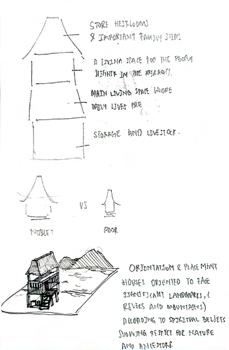 STORE HEIRLOOMS
& IMPORTANT FAMILY ITEMS
A LIVING SPACE FOR THE PEOPLE
IN THE
MAIN LIVING SPACE WHERE
DAILY LIVES ARE
STORAGE AND LIVESTOCK.
VS
NOBLEY
POOR
ORIENTATION & PLACEMENT
HOUSES ORIENTED TO FACE
SIGNIFICANT LANDMARKS, (
RIVERS AND MOUNTAINS)
ACCORDING TO SPIRITUAL BELIEFS
SHOWING RESPECT FOR NATURE
AND ANCESTORS